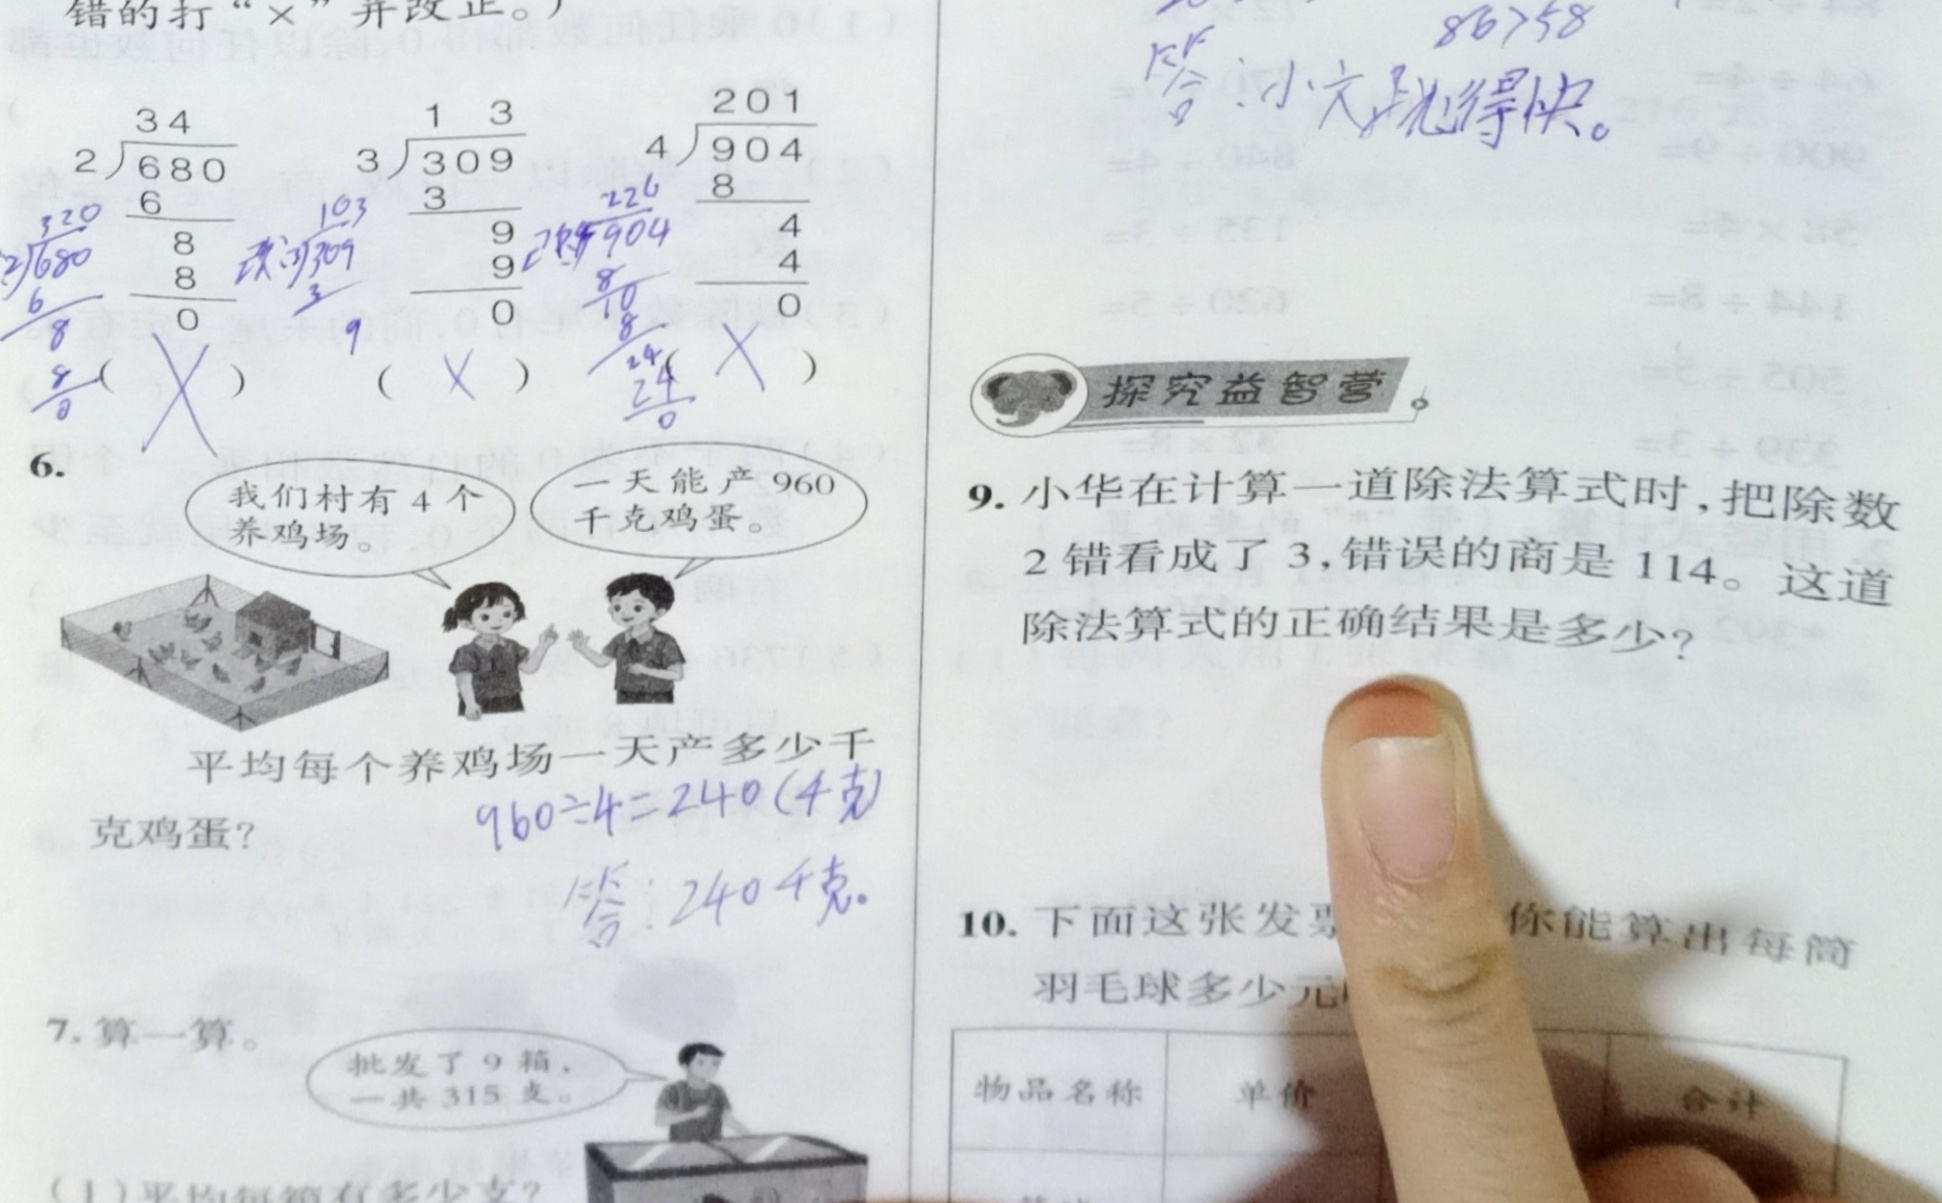 错的打“×”并改正。)
34
2)680
6
8
8
0
( × )
320
2)680
6
8
8
0
1 3
3)309
3
9
9
0
( × )
103
3)309
3
9
201
4)904
8
4
4
0
( × )
226
904
8
10
8
24
24
0
6.
我们村有 4 个
养鸡场。
一天能产 960
千克鸡蛋。
平均每个养鸡场一天产多少千
克鸡蛋?
960÷4=240(千克)
答:240千克。
7. 算一算。
批发了 9 箱,
一共 315 支。
(1)平均每箱有多少支?
86>58
答:小六跑得快。
探究益智营
9. 小华在计算一道除法算式时,把除数
2 错看成了 3,错误的商是 114。这道
除法算式的正确结果是多少?
10. 下面这张发票 你能算出每筒
羽毛球多少元
物品名称 单价 合计